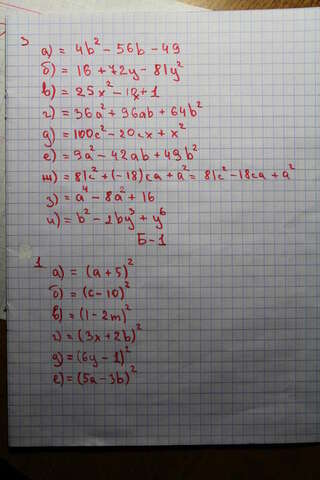 3
а) = 4b² - 56b - 49
б) = 16 + 72y - 81y²
в) = 25x² - 10x + 1
г) = 36a² + 96ab + 64b²
д) = 100c² - 20cx + x²
е) = 9a² - 42ab + 49b²
ж) = 81c² + (-18)ca + a² = 81c² - 18ca + a²
з) = a⁴ - 8a² + 16
и) = b² - 2by³ + y⁶
Б-1
1
а) = (a + 5)²
б) = (c - 10)²
в) = (1 - 2m)²
г) = (3x + 2b)²
д) = (6y - 1)²
е) = (5a - 3b)²